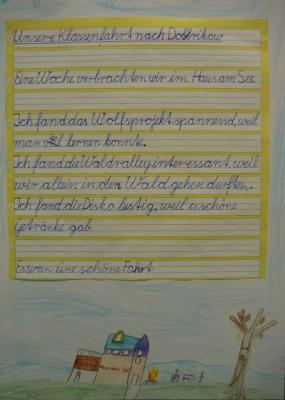 Unsere Klassenfahrt nach Dobbrikow
Eine Woche verbrachten wir im Haus am See.
Ich fand das Wolfsprojekt spannend, weil
man viel lernen konnte.
Ich fand die Waldralley interessant, weil
wir allein in den Wald gehen durften.
Ich fand die Disko lustig, weil es schöne
Getränke gab.
Es war eine schöne Fahrt.